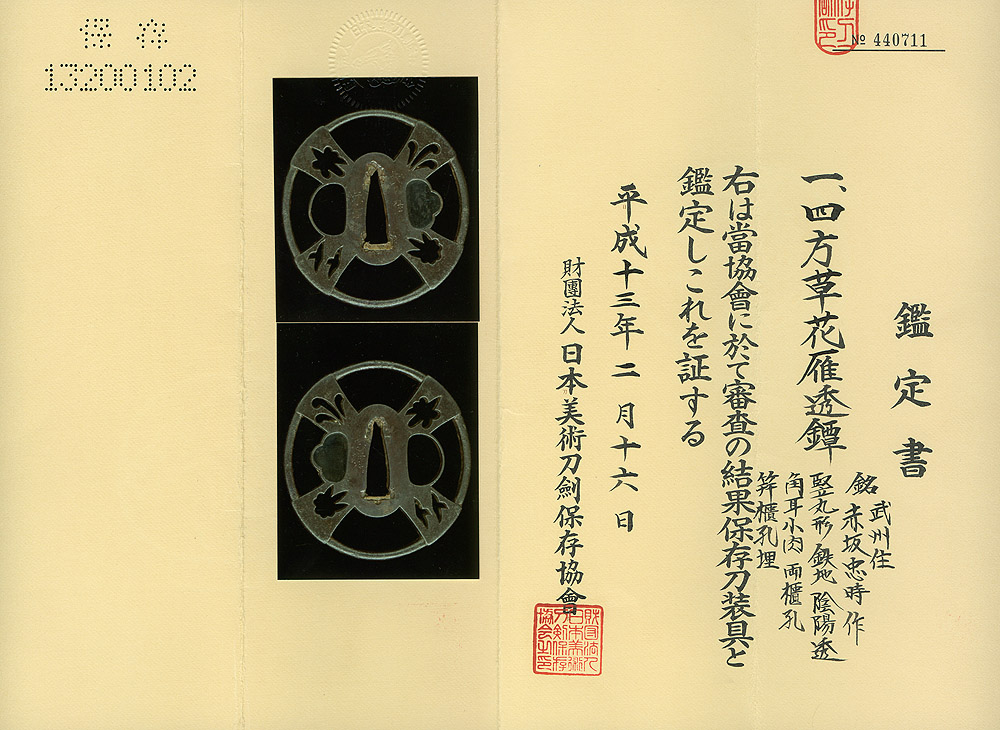 保存
13200102
№ 440711
鑑定書
一、四方草花雁透鐔
銘 武州住
赤坂忠時作
竪丸形 鉄地 陰陽透
角耳小肉 両櫃孔
笄櫃孔埋
右は當協會に於て審査の結果保存刀装具と
鑑定しこれを証する
平成十三年二月十六日
財團法人 日本美術刀劍保存協會
財団法人
日本美術
刀剣保存
協会之印